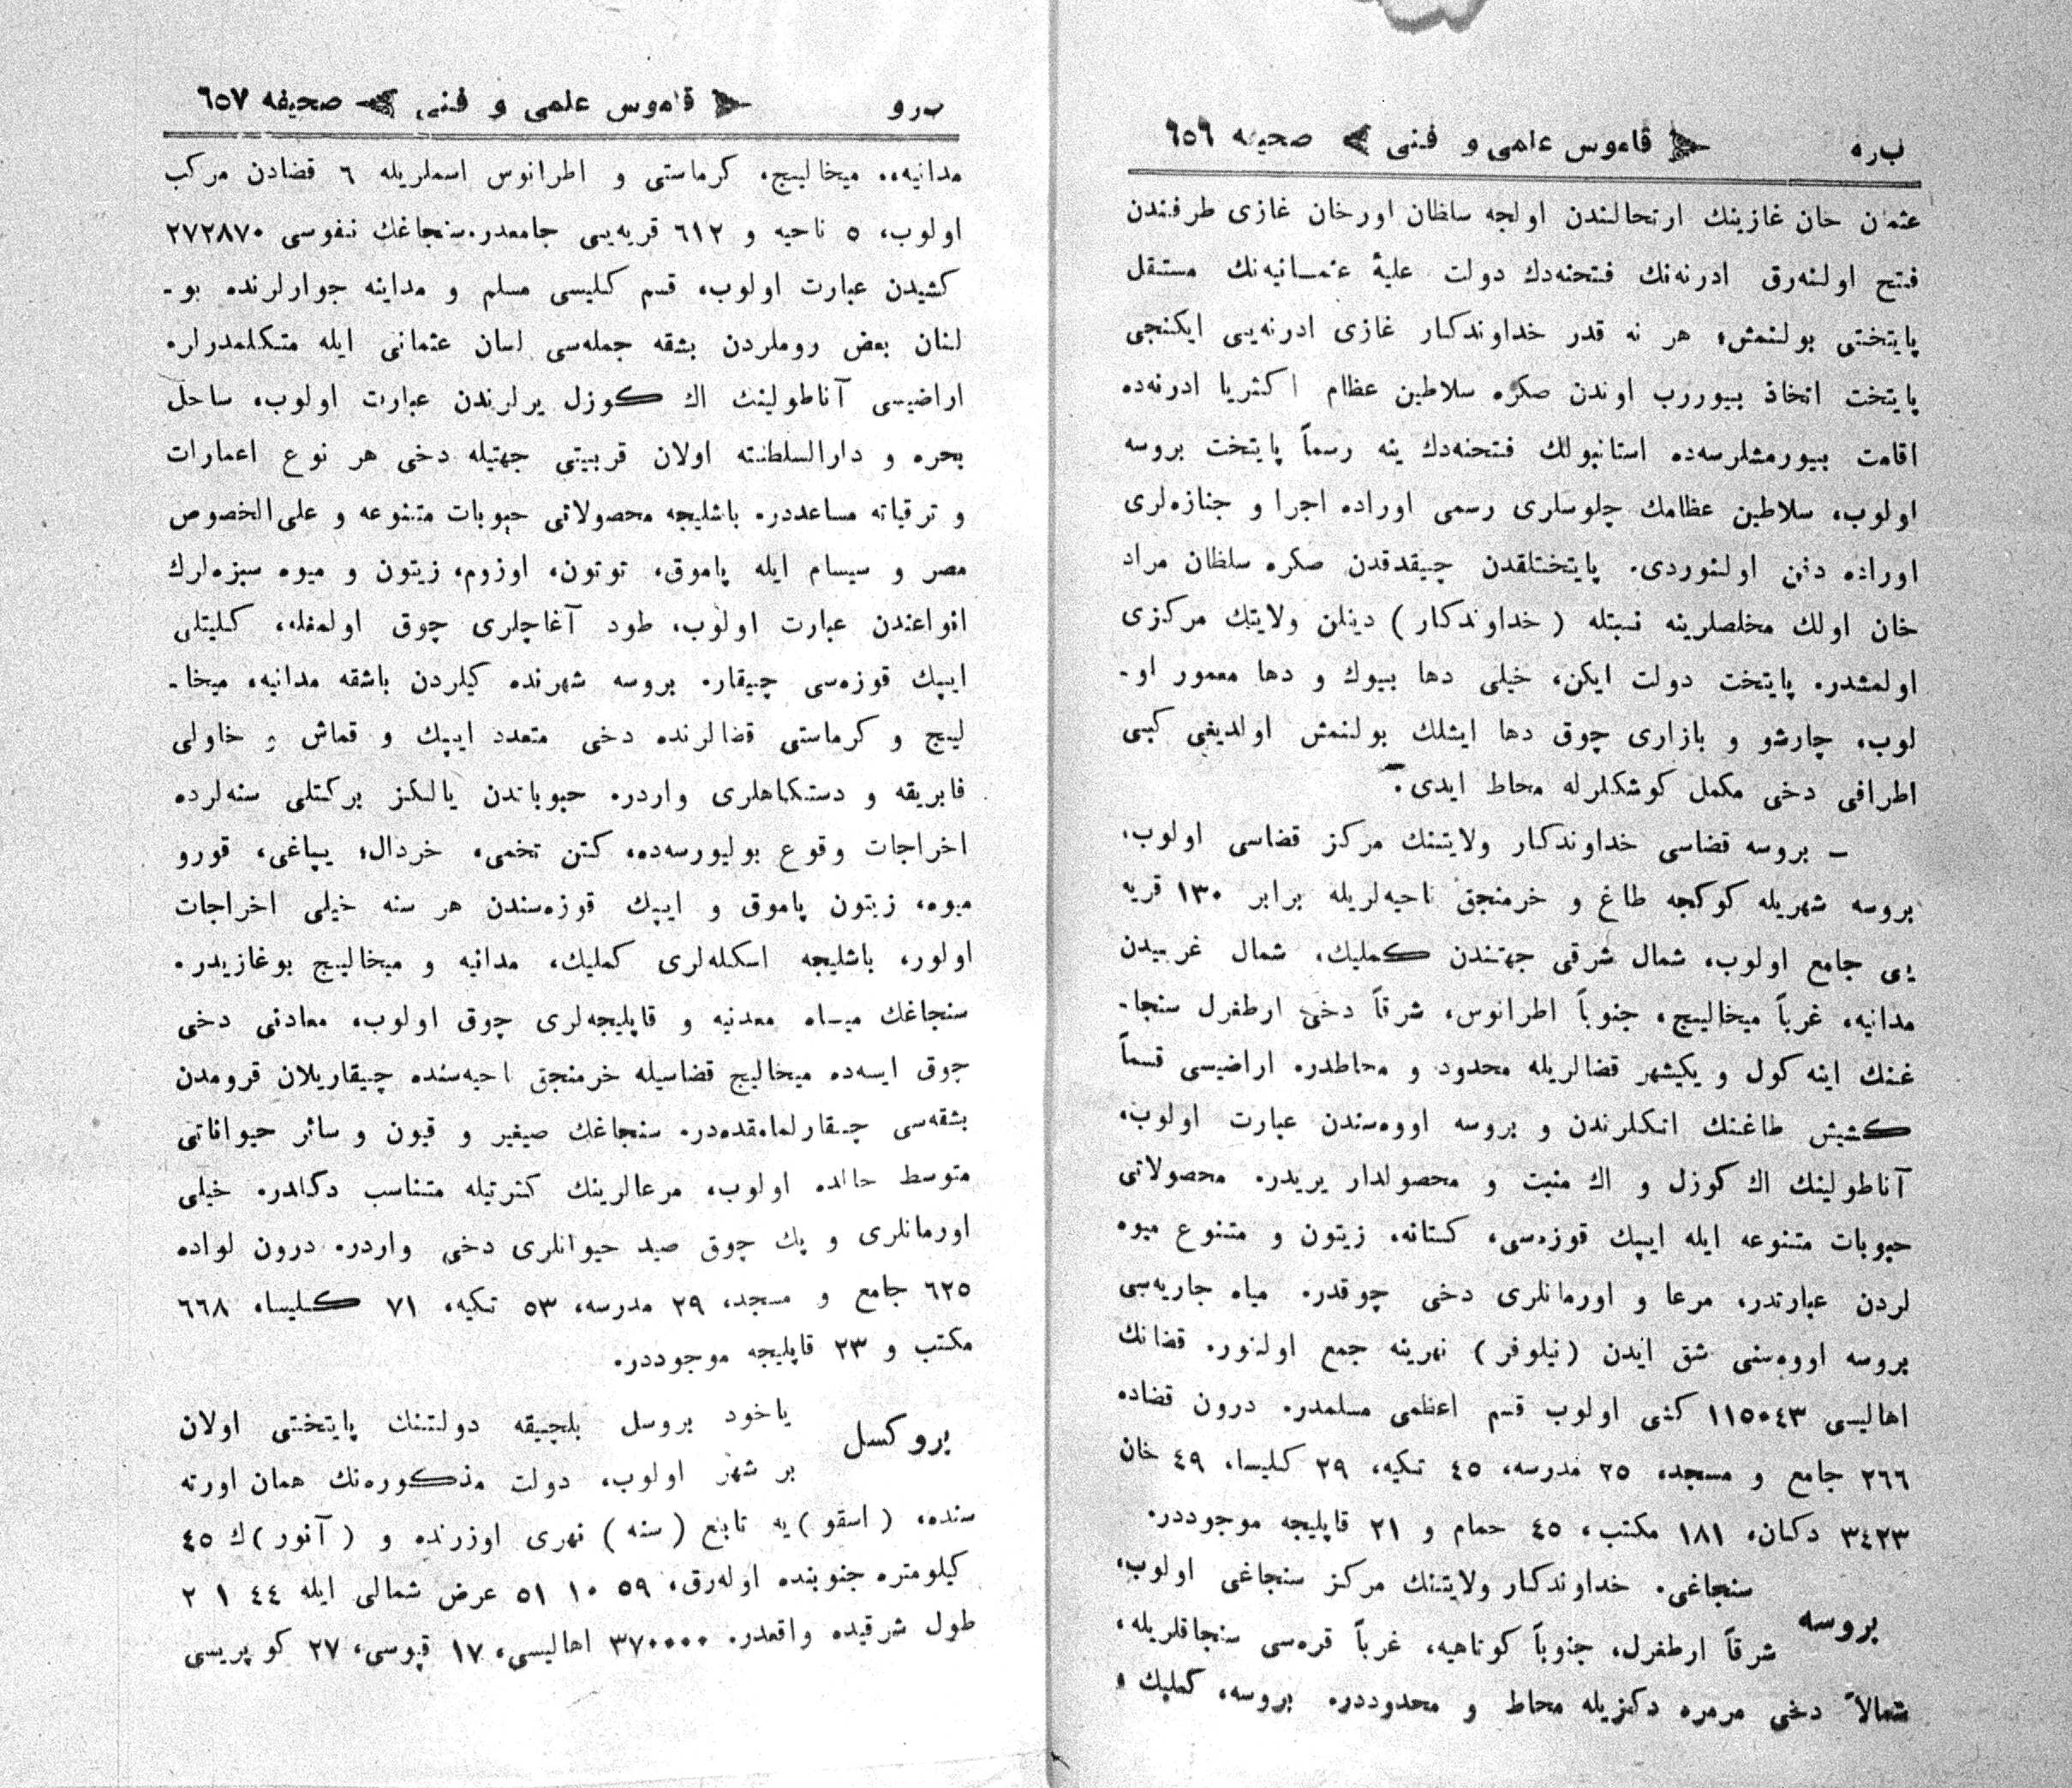 ب‌ره ﴿ قاموس علمی و فنی ﴾ صحیفه ٦٥٦
عثمان خان غازینك ارتحالندن اولجه سلطان اورخان غازی طرفندن
فتح اولنه‌رق ادرنه‌نك فتحنه‌دك دولت علیۀ عثمـانیه‌نك مستقل
پایتختی بولنمش، هر نه قدر خداوندکار غازی ادرنه‌یی ایکنجی
پایتخت اتخاذ بیوررب اوندن صکره سلاطین عظام اکثریا ادرنه‌ده
اقامت بیورمشلرسه‌ده استانبولك فتحنه‌دك ینه رسماً پایتخت بروسه
اولوب، سلاطین عظامك جلوسلری رسمی اوراده اجرا و جنازه‌لری
اوراده دفن اولنوردی. پایتختلقدن چیقدقدن صکره سلطان مراد
خان اولك مخلصلرینه نسبتله (خداوندکار) دینلن ولایتك مرکزی
اولمشدر. پایتخت دولت ایکن، خیلی دها بیوك و دها معمور او-
لوب، چارشو و بازاری چوق دها ایشلك بولنمش اولدیغی کبی
اطرافی دخی مکمل کوشکلرله محاط ایدی.
– بروسه قضاسی خداوندکار ولایتنك مرکز قضاسی اولوب،
بروسه شهریله کوکجه طاغ و خرمنجق ناحیه‌لریله برابر ١٣٠ قریه
یی جامع اولوب، شمال شرقی جهتندن کملیك، شمال غربیدن
مدانیه، غرباً میخالیج، جنوباً اطرانوس، شرقاً دخی ارطغرل سنجا-
غنك اینه کول و یکیشهر قضالریله محدود و محاطدر. اراضیسی قسماً
کشیش طاغنك اتکلرندن و بروسه اووه‌سندن عبارت اولوب،
آناطولینك اك کوزل و اك منبت و محصولدار یریدر. محصولاتی
حبوبات متنوعه ایله ایپك قوزه‌سی، کستانه، زیتون و متنوع میوه
لردن عبارتدر، مرعا و اورمانلری دخی چوقدر. میاه جاریه‌سی
بروسه اووه‌سنی شق ایدن (نیلوفر) نهرینه جمع اولنور. قضانك
اهالیسی ١١٥٠٤٣ کشی اولوب قسم اعظمی مسلمدر. درون قضاده
٢٦٦ جامع و مسجد، ٢٥ مدرسه، ٤٥ تکیه، ٢٩ کلیسا، ٤٩ خان
٣٤٢٣ دکان، ١٨١ مکتب، ٤٥ حمام و ٢١ قاپلیجه موجوددر.
بروسه سنجاغی. خداوندکار ولایتنك مرکز سنجاغی اولوب،
شرقاً ارطغرل، جنوباً کوتاهیه، غرباً قره‌سی سنجاقلریله،
شمالاً دخی مرمره دکزیله محاط و محدوددر. بروسه، کملیك،
ب‌رو ﴿ قاموس علمی و فنی ﴾ صحیفه ٦٥٧
مدانیه، میخالیج، کرماستی و اطرانوس اسملریله ٦ قضادن مرکب
اولوب، ٥ ناحیه و ٦١٢ قریه‌یی جامعدر. سنجاغك نفوسی ٢٧٢٨٧٠
کشیدن عبارت اولوب، قسم کلیسی مسلم و مداینه جوارلرنده بو-
لنان بعض روملردن بشقه جمله‌سی لسان عثمانی ایله متکلمدرلر.
اراضیسی آناطولینك اك کوزل یرلرندن عبارت اولوب، ساحل
بحره و دارالسلطنته اولان قربیتی جهتیله دخی هر نوع اعمارات
و ترقیاته مساعددر. باشلیجه محصولاتی حبوبات متنوعه و علی الخصوص
مصر و سیسام ایله پاموق، توتون، اوزوم، زیتون و میوه سبزه‌لرك
انواعندن عبارت اولوب، طود آغاچلری چوق اولمغله، کلیتلی
ایپك قوزه‌سی چیقار. بروسه شهرنده کیلردن باشقه مدانیه، میخا-
لیج و کرماستی قضالرنده دخی متعدد ایپك و قماش و خاولی
فابریقه و دستکاهلری واردر. حبوباتدن یالکز برکتلی سنه‌لرده
اخراجات وقوع بولیورسه‌ده، کتن تخمی، خردال، یپاغی، قورو
میوه، زیتون پاموق و ایپك قوزه‌سندن هر سنه خیلی اخراجات
اولور، باشلیجه اسکله‌لری کملیك، مدانیه و میخالیج بوغازیدر.
سنجاغك میـاه معدنیه و قاپلیجه‌لری چوق اولوب، معادنی دخی
چوق ایسه‌ده میخالیج قضاسیله خرمنجق ناحیه‌سنده چیقاریلان قرومدن
بشقه‌سی چیقارلمامقده‌در. سنجاغك صیغیر و قیون و سائر حیواناتی
متوسط حالده اولوب، مرعالرینك کثرتیله متناسب دکلدر. خیلی
اورمانلری و پك چوق صید حیوانلری دخی واردر. درون لواده
٦٢٥ جامع و مسجد، ٢٩ مدرسه، ٥٣ تکیه، ٧١ کلیسا، ٦٦٨
مکتب و ٢٣ قاپلیجه موجوددر.
بروکسل یاخود بروسل بلجیقه دولتنك پایتختی اولان
بر شهر اولوب، دولت مذکوره‌نك همان اورته
سنده، (اسقو)یه تابع (سنه) نهری اوزرنده و (آنور)ك ٤٥
کیلومتره جنوبنده اوله‌رق، ٥٩ ١٠ ٥١ عرض شمالی ایله ٤٤ ١ ٢
طول شرقیده واقعدر. ٣٧٠٠٠٠ اهالیسی، ١٧ قپوسی، ٢٧ کوپریسی